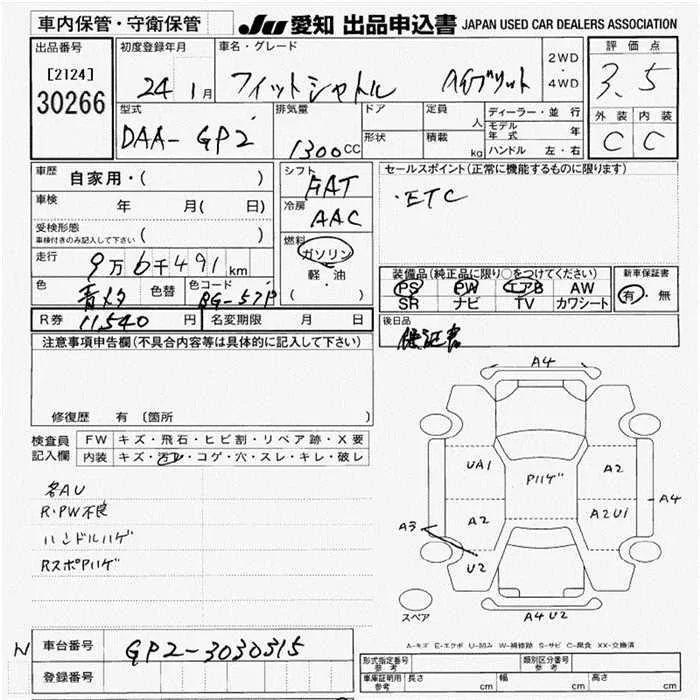 車内保管・守衛保管
JU 愛知 出品申込書 JAPAN USED CAR DEALERS ASSOCIATION
出品番号
[2124]
30266
初度登録年月
24 1月
車名・グレード
フィットシャトル ハイブリット
2WD
・
4WD
評価点
3.5
外装 内装
C C
型式
DAA-GP2
排気量
1300CC
ドア
形状
定員 人
積載 kg
ディーラー・並行
モデル年式 年
ハンドル 左・右
車歴 自家用・( )
車検 年 月( 日)
受検形態
車検付きのみ記入して下さい ( )
走行 9万6千491km
色 青メタ
色替
色コード BG-57P
シフト FAT
冷房 AAC
燃料
ガソリン
軽・油
( )
セールスポイント(正常に機能するものに限ります)
・ETC
装備品(純正品に限り○をつけてください)
PS PW エアB AW
SR ナビ TV カワシート
新車保証書
有・無
R券 11,540円
名変期限 月 日
後日品
保証書
注意事項申告欄(不具合内容等は具体的に記入して下さい)
修復歴 有 〔箇所
検査員記入欄
FW キズ・飛石・ヒビ割・リペア跡・X要
内装 キズ・汚レ・コゲ・穴・スレ・キレ・破レ
各AU
R・PW不良
ハンドルハゲ
RスポPハゲ
A4
UA1
Pハゲ
A2
A2
A2U1
A4
A3
U2
スペア
A4U2
A-キズ E-エクボ U-凹み W-補修跡 S-サビ C-腐食 XX-交換済
N 車台番号 GP2-3030315
登録番号
形式指定番号 参考
類別区分番号 参考
車庫証明用 参考 長さ cm 幅 cm 高さ cm